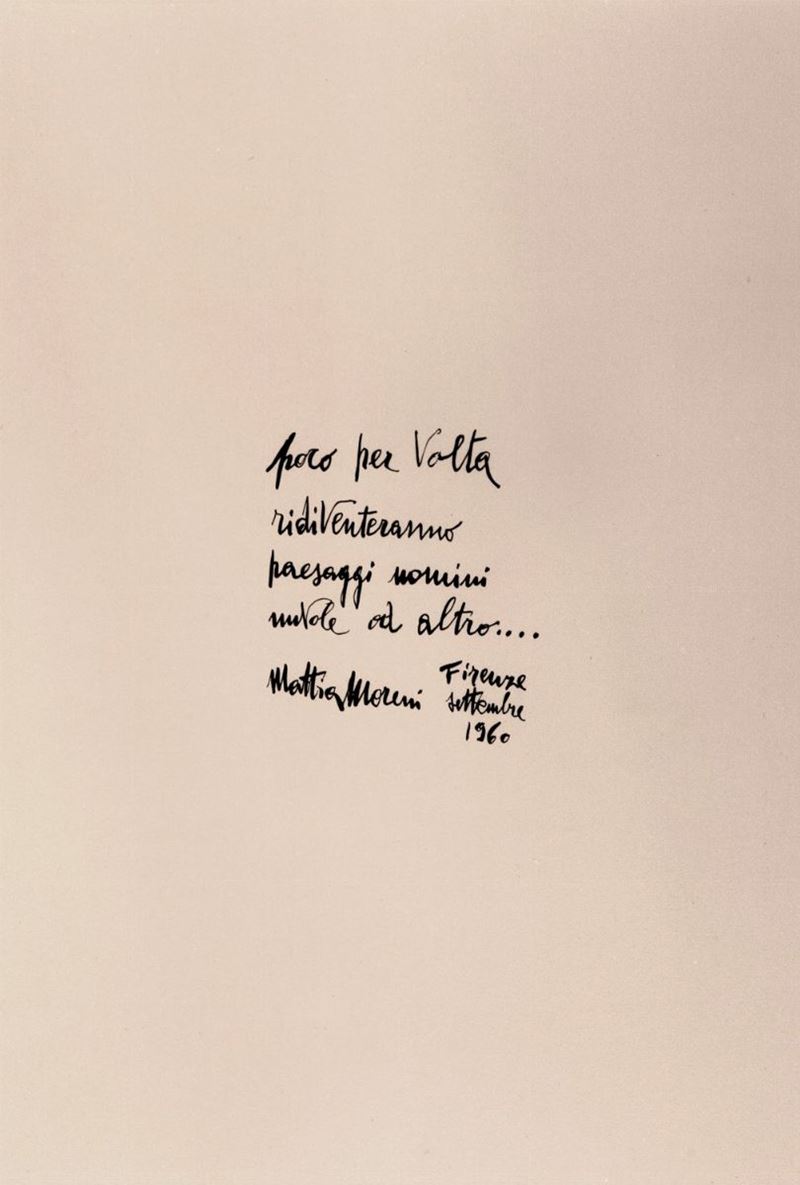 poco per Volta
ridiVenteranno
paesaggi uomini
nuVole od altro....
Mattia Moreni
Firenze
settembre
1960